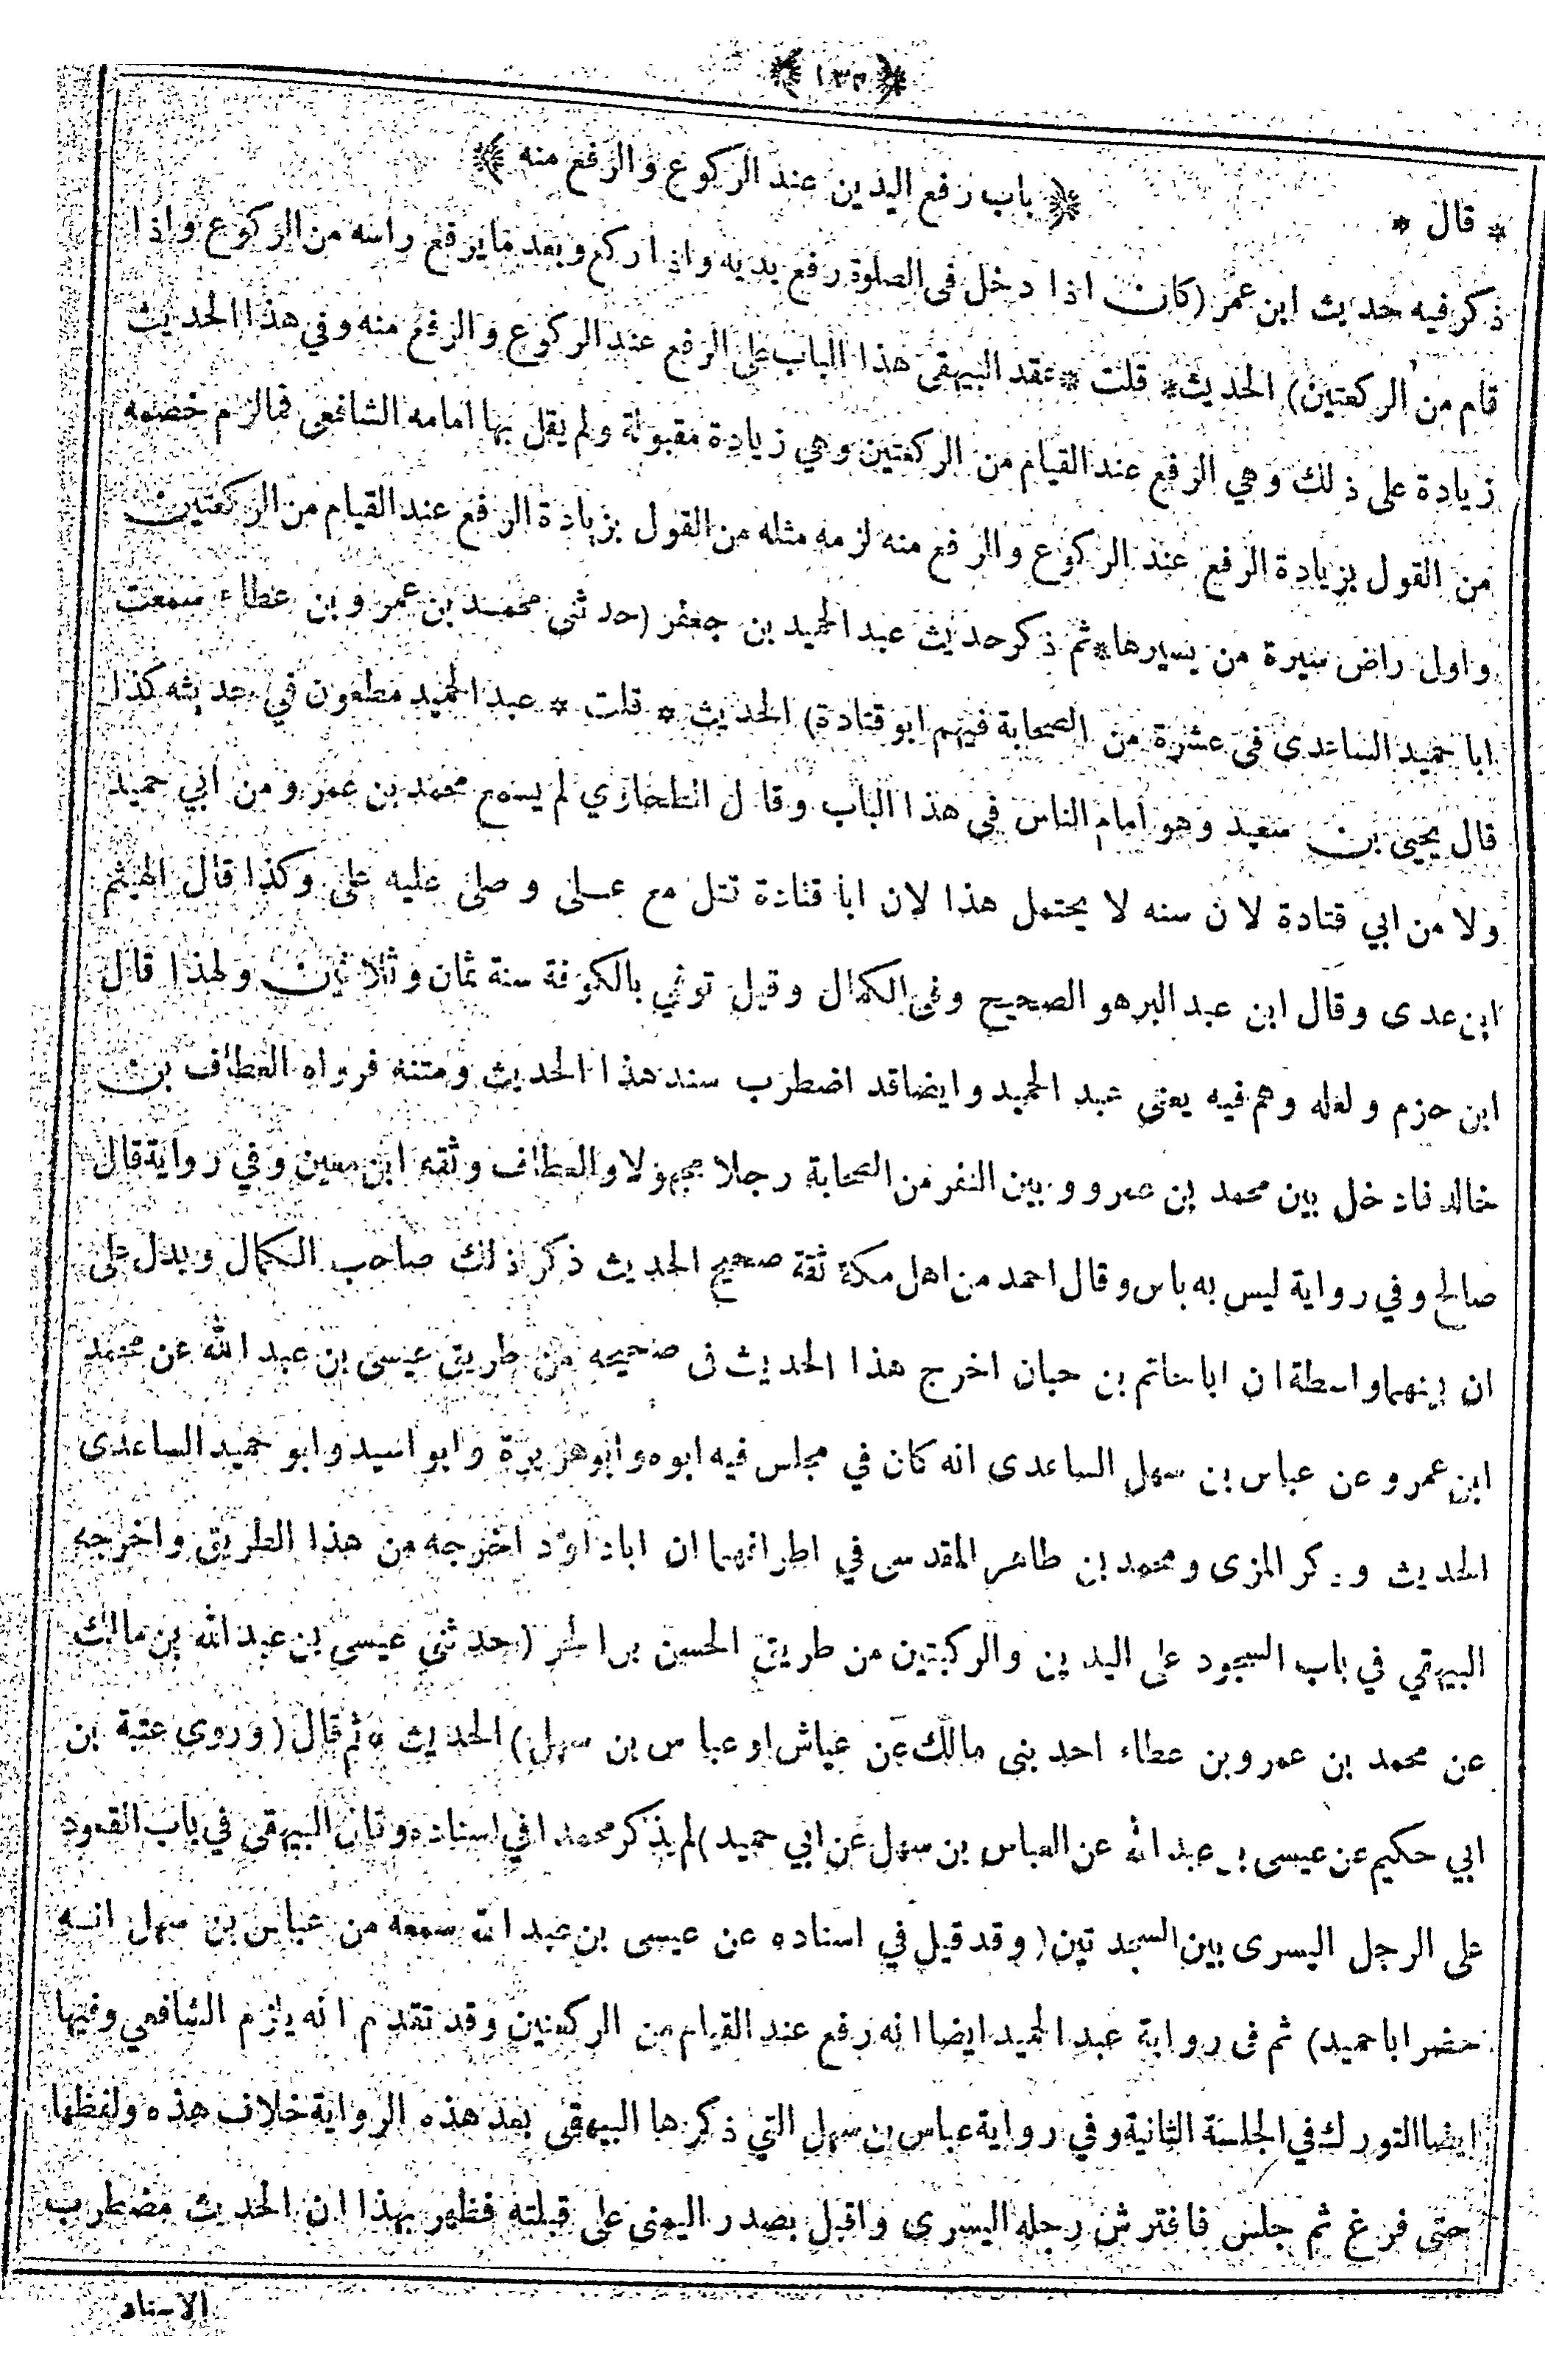 ﴿ ١٣٣ ﴾
* قال * ﴿ باب رفع اليدين عند الركوع والرفع منه ﴾
ذكر فيه حديث ابن عمر (كان اذا دخل فى الصلوة رفع يديه واذا ركع وبعد ما يرفع راسه من الركوع واذا
قام من الركعتين) الحديث * قلت * عقد البيهقى هذا الباب على الرفع عند الركوع والرفع منه وفي هذا الحديث
زيادة على ذلك وهي الرفع عند القيام من الركعتين وهي زيادة مقبولة ولم يقل بها امامه الشافعى فمالزم خصمه
من القول بزيادة الرفع عند الركوع والرفع منه لزمه مثله من القول بزيادة الرفع عند القيام من الركعتين
واول راض سيرة من يسيرها * ثم ذكر حديث عبد الحميد بن جعفر (حدثنى محمد بن عمرو بن عطاء سمعت
ابا حميد الساعدى فى عشرة من الصحابة فيهم ابو قتادة) الحديث * قلت * عبد الحميد مطعون في حديثه كذا
قال يحيى بن سعيد وهو امام الناس في هذا الباب وقال الطحاوي لم يسمع محمد بن عمرو من ابي حميد
ولا من ابي قتادة لان سنه لا يحتمل هذا لان ابا قتادة قتل مع على وصلى عليه على وكذا قال الهيثم
ابن عدى وقال ابن عبد البر هو الصحيح وفى الكمال وقيل توفي بالكوفة سنة ثمان وثلاثين ولهذا قال
ابن حزم ولعله وهم فيه يعنى عبد الحميد وايضا قد اضطرب سند هذا الحديث ومتنه فرواه العطاف بن
خالد فادخل بين محمد بن عمرو وبين النفر من الصحابة رجلا مجهولا والعطاف وثقه ابن معين وفي رواية قال
صالح وفي رواية ليس به باس وقال احمد من اهل مكة ثقة صحيح الحديث ذكر ذلك صاحب الكمال ويدل على
ان بينهما واسطة ان ابا حاتم بن حبان اخرج هذا الحديث فى صحيحه من طريق عيسى بن عبد الله عن محمد
ابن عمرو عن عباس بن سهل الساعدى انه كان في مجلس فيه ابوه وابو هريرة وابو اسيد وابو حميد الساعدى
الحديث وذكر المزى ومحمد بن طاهر المقدسى في اطرافهما ان ابا داؤد اخرجه من هذا الطريق واخرجه
البيهقي في باب السجود على اليدين والركبتين من طريق الحسن بن الحر (حدثني عيسى بن عبد الله بن مالك
عن محمد بن عمرو بن عطاء احد بنى مالك عن عياش او عباس بن سهل) الحديث * ثم قال (وروى عتبة بن
ابي حكيم عن عيسى بن عبد الله عن العباس بن سهل عن ابي حميد) لم يذكر محمدا في اسناده وقال البيهقى في باب القعود
على الرجل اليسرى بين السجدتين (وقد قيل في اسناده عن عيسى بن عبد الله سمعه من عباس بن سهل انه
حضر ابا حميد) ثم فى رواية عبد الحميد ايضا انه رفع عند القيام من الركعتين وقد تقدم انه يلزم الشافعي وفيها
ايضا التورك في الجلسة الثانية وفي رواية عباس بن سهل التي ذكرها البيهقى بعد هذه الرواية خلاف هذه ولفظها
حتى فرغ ثم جلس فافترش رجله اليسرى واقبل بصدر اليمنى على قبلته فظهر بهذا ان الحديث مضطرب
الاسناد